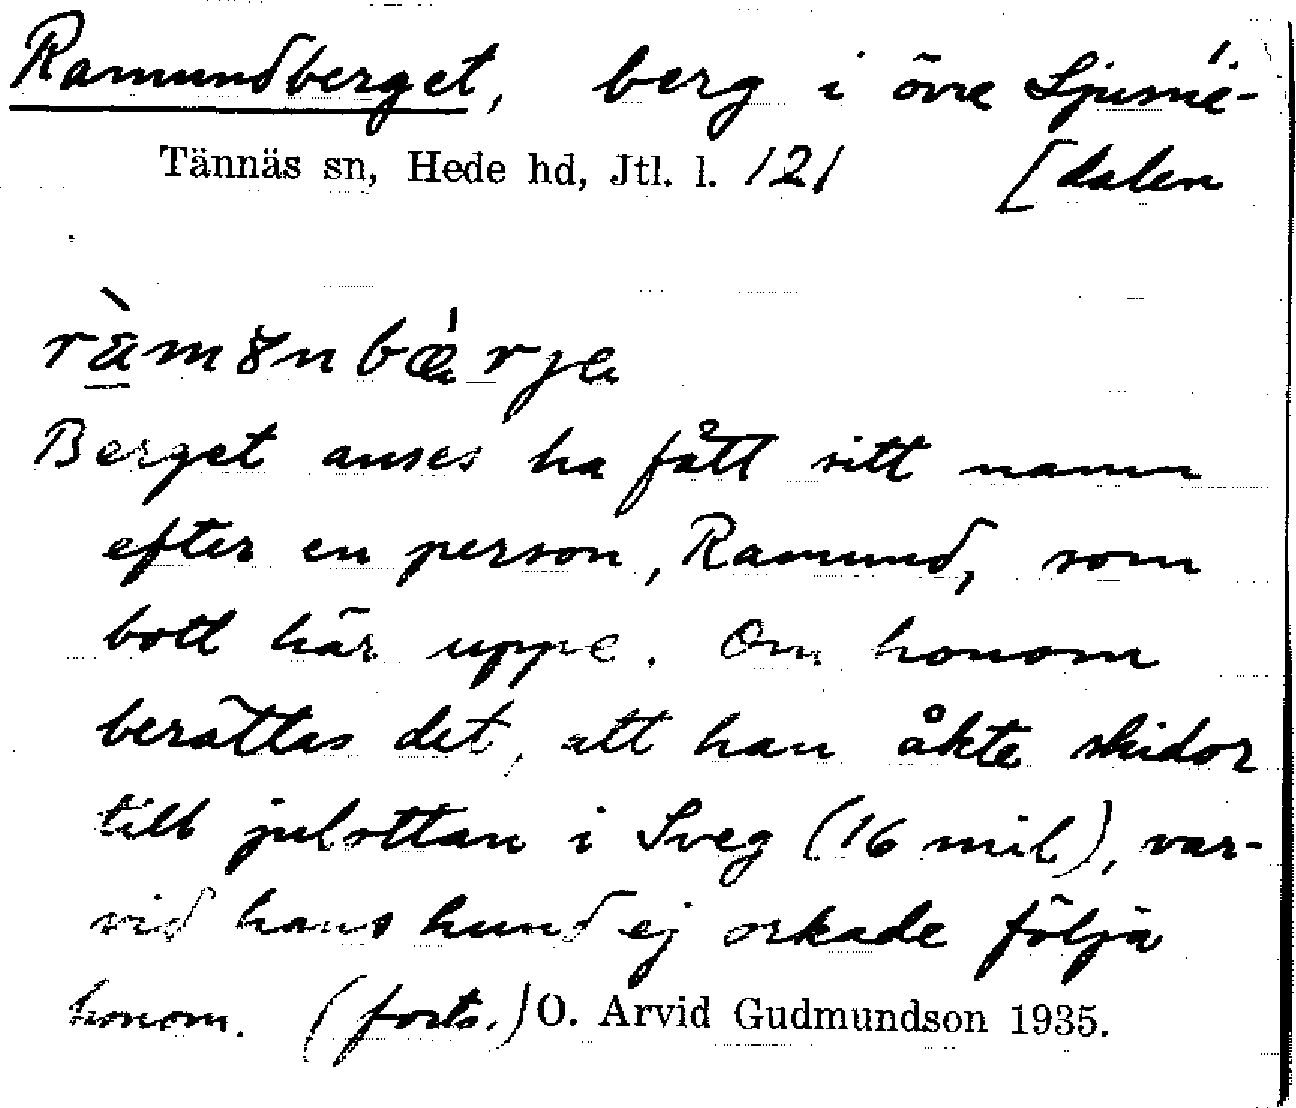 Ramundberget, berg i övre Ljusne-
Tännäs sn, Hede hd, Jtl. l. 121 [dalen
1.
Berget anses ha fått sitt namn
efter en person, Ramund, som
bott här uppe. Om honom
berättas det, att han åkte skidor
till julottan i Sveg (16 mil), var-
vid hans hund ej orkade följa
honom. (forts.) O. Arvid Gudmundson 1935.